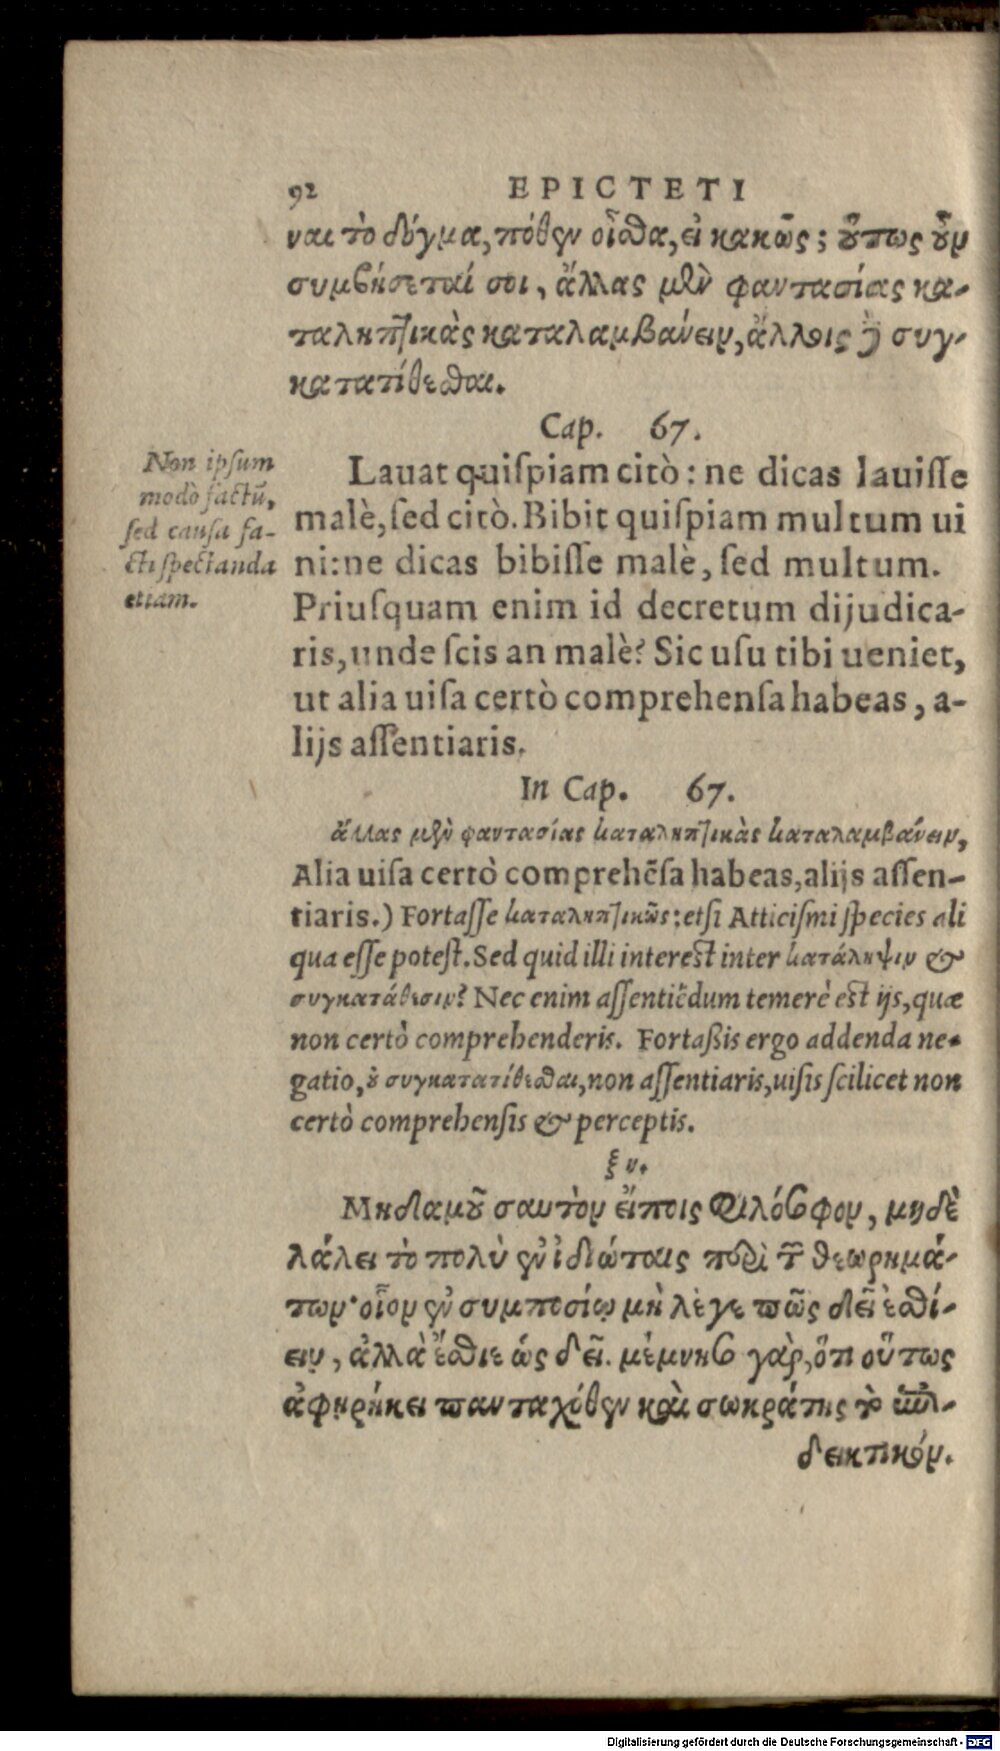 92 EPICTETI
ναι τὸ δόγμα, πόθεν οἶσθα, εἰ κακῶς; οὕτως οὖν
συμβήσεταί σοι, ἄλλας μὲν φαντασίας κα-
ταληπτικὰς καταλαμβάνειν, ἄλλοις δὲ συγ-
κατατίθεσθαι.
Cap. 67.
Non ipsum
modò factũ,
sed causa fa-
cti spectanda
etiam.
Lauat quiſpiam citò: ne dicas lauiſſe
malè, ſed citò. Bibit quiſpiam multum ui
ni: ne dicas bibiſſe malè, ſed multum.
Priuſquam enim id decretum dijudica-
ris, unde ſcis an malè? Sic uſu tibi ueniet,
ut alia uiſa certò comprehenſa habeas, a-
lijs aſſentiaris.
In Cap. 67.
ἄλλας μὲν φαντασίας καταληπτικὰς καταλαμβάνειν,
Alia uiſa certò comprehẽſa habeas, alijs aſſen-
tiaris.) Fortaſſe καταληπτικῶς: etſi Atticiſmi ſpecies ali
qua eſſe poteſt. Sed quid illi intereſt inter κατάληψιν &
συγκατάθεσιν? Nec enim aſſentiẽdum temerè eſt ijs, quæ
non certò comprehenderis. Fortaßis ergo addenda ne-
gatio, οὐ συγκατατίθεσθαι, non aſſentiaris, uiſis ſcilicet non
certò comprehenſis & perceptis.
ξη.
Μηδαμοῦ σαυτὸν εἴποις φιλόσοφον, μηδὲ
λάλει τὸ πολὺ ἐν ἰδιώταις περὶ τῶν θεωρημά-
των· οἷον ἐν συμποσίῳ μὴ λέγε πῶς δεῖ ἐσθί-
ειν, ἀλλὰ ἔσθιε ὡς δεῖ. μέμνησο γὰρ, ὅτι οὕτως
ἀφῃρήκει πανταχόθεν καὶ σωκράτης τὸ ἐπι-
δεικτικόν.
Digitalisierung gefördert durch die Deutsche Forschungsgemeinschaft - DFG